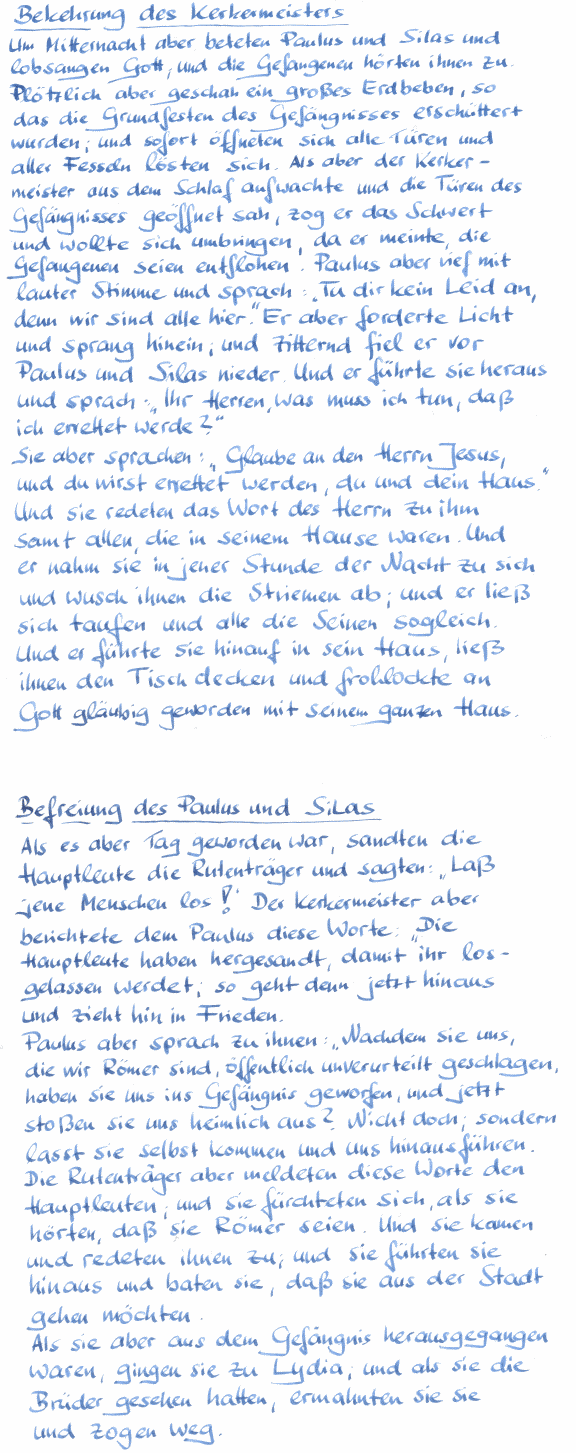 Bekehrung des Kerkermeisters
Um Mitternacht aber beteten Paulus und Silas und
lobsangen Gott, und die Gefangenen hörten ihnen zu.
Plötzlich aber geschah ein großes Erdbeben, so
das die Grundfesten des Gefängnisses erschüttert
wurden; und sofort öffneten sich alle Türen und
aller Fesseln lösten sich. Als aber der Kerker-
meister aus dem Schlaf aufwachte und die Türen des
Gefängnisses geöffnet sah, zog er das Schwert
und wollte sich umbringen, da er meinte, die
Gefangenen seien entflohen. Paulus aber rief mit
lauter Stimme und sprach: „Tu dir kein Leid an,
denn wir sind alle hier." Er aber forderte Licht
und sprang hinein; und zitternd fiel er vor
Paulus und Silas nieder. Und er führte sie heraus
und sprach: „Ihr Herren, was muss ich tun, daß
ich errettet werde?"
Sie aber sprachen: „Glaube an den Herrn Jesus,
und du wirst errettet werden, du und dein Haus."
Und sie redeten das Wort des Herrn zu ihm
samt allen, die in seinem Hause waren. Und
er nahm sie in jener Stunde der Nacht zu sich
und wusch ihnen die Striemen ab; und er ließ
sich taufen und alle die Seinen sogleich.
Und er führte sie hinauf in sein Haus, ließ
ihnen den Tisch decken und frohlockte an
Gott gläubig geworden mit seinem ganzen Haus.
Befreiung des Paulus und Silas
Als es aber Tag geworden war, sandten die
Hauptleute die Rutenträger und sagten: „Laß
jene Menschen los!" Der Kerkermeister aber
berichtete dem Paulus diese Worte: „Die
Hauptleute haben hergesandt, damit ihr los-
gelassen werdet; so geht denn jetzt hinaus
und zieht hin in Frieden.
Paulus aber sprach zu ihnen: „Nachdem sie uns,
die wir Römer sind, öffentlich unverurteilt geschlagen,
haben sie uns ins Gefängnis geworfen, und jetzt
stoßen sie uns heimlich aus? Nicht doch; sondern
lasst sie selbst kommen und uns hinausführen.
Die Rutenträger aber meldeten diese Worte den
Hauptleuten; und sie fürchteten sich, als sie
hörten, daß sie Römer seien. Und sie kamen
und redeten ihnen zu; und sie führten sie
hinaus und baten sie, daß sie aus der Stadt
gehen möchten.
Als sie aber aus dem Gefängnis herausgegangen
waren, gingen sie zu Lydia; und als sie die
Brüder gesehen hatten, ermahnten sie sie
und zogen weg.